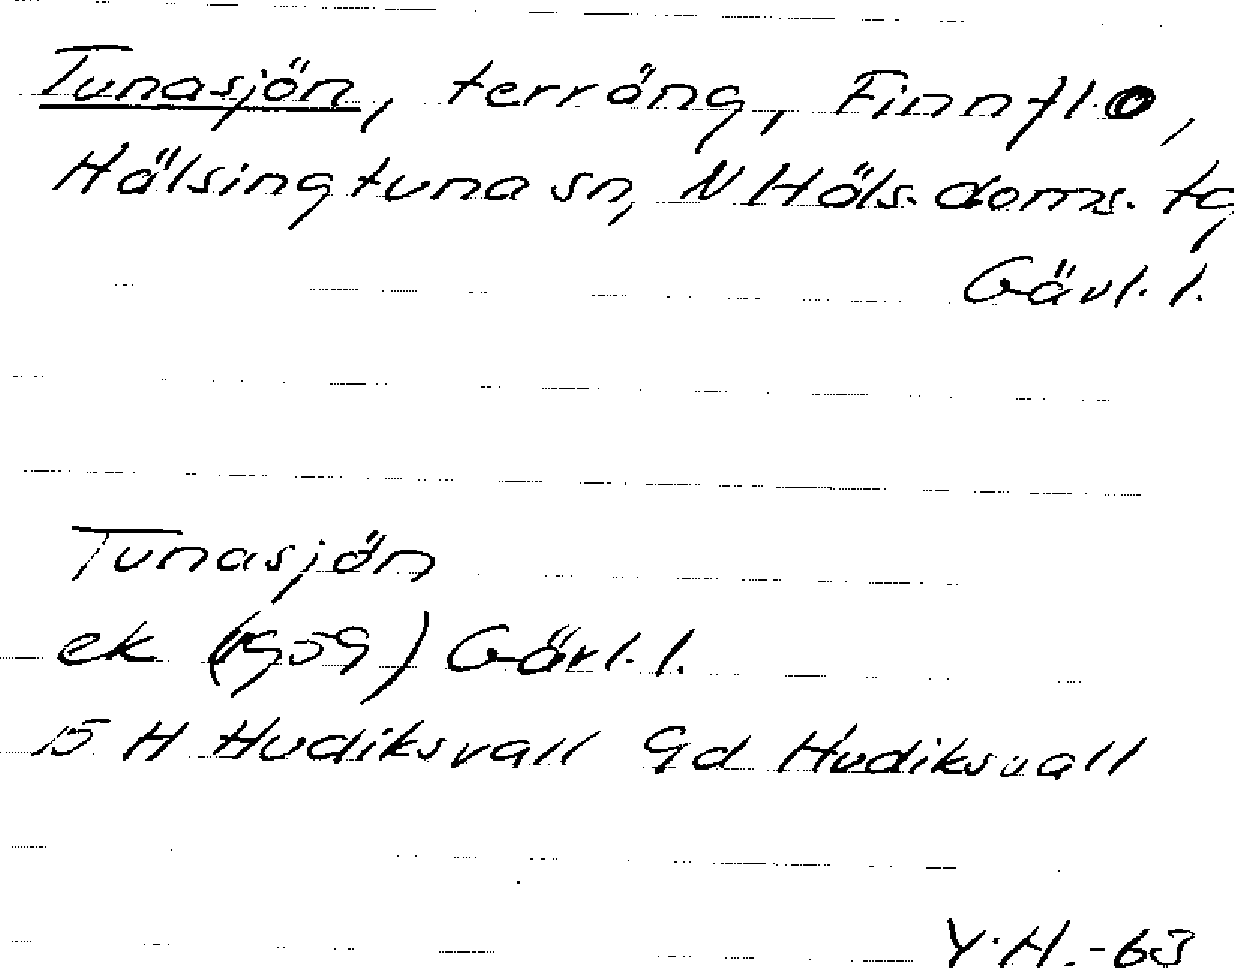 Tunasjön, terräng, Finnflo,
Hälsingtuna sn, N Häls. doms. tg
Gävl. l.
Tunasjön
ek (1959) Gävl. l.
15 H Hudiksvall 9d Hudiksvall
Y.H.-63